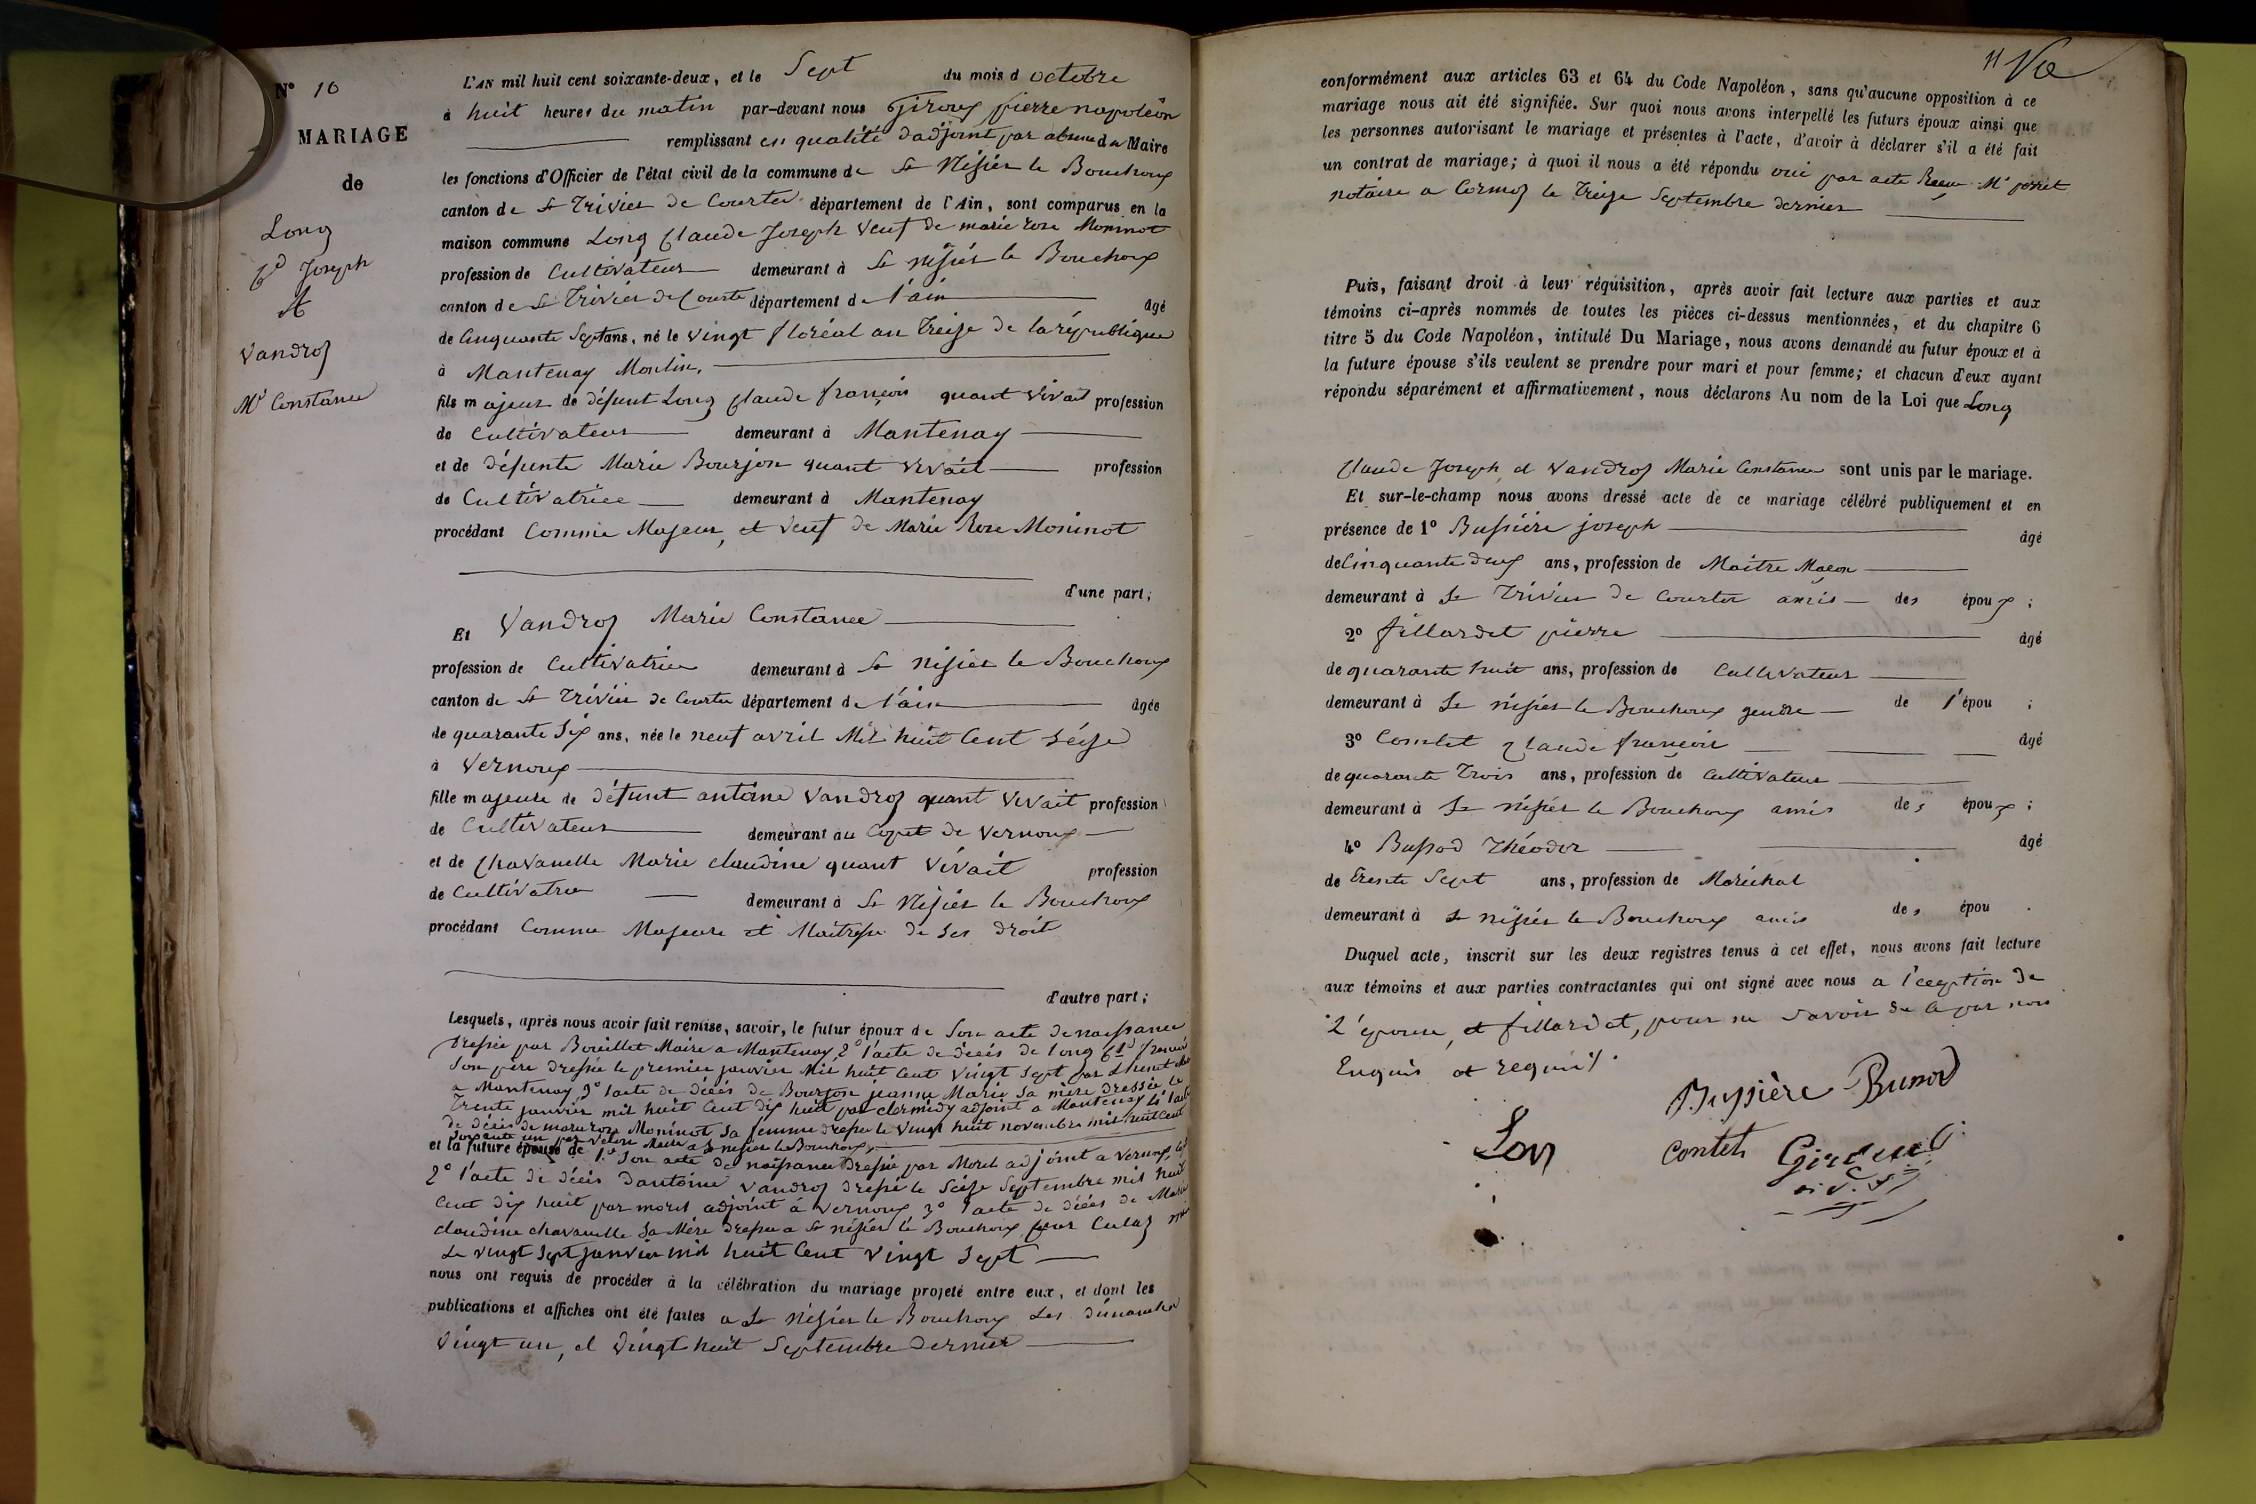 N° 10
MARIAGE
de
Long
Cd Joseph
et
Vandroz
Mie Constance
L'AN mil huit cent soixante-deux, et le Sept du mois d octobre
à huit heures du matin par-devant nous Giroux pierre napoléon
remplissant en qualité d'adjoint par absence du Maire
les fonctions d'Officier de l'état civil de la commune de St Nisier le Bouchoux
canton de St Trivier de Courtes département de l'Ain, sont comparus en la
maison commune Long Claude Joseph Veuf de marie rose Moninot
profession de Cultivateur demeurant à St nisier le Bouchoux
canton de St Trivier de Courte département de l'ain âgé
de Cinquante Sept ans, né le vingt floréal an Treize de la république
à Mantenay Montlin,
fils majeur de défunt Long Claude françois quant vivait profession
de Cultivateur demeurant à Mantenay
et de défunte Marie Bourjon quant vivait profession
de Cultivatrice demeurant à Mantenay
procédant Comme Majeur, et veuf de Marie Rose Moninot
d'une part;
Et Vandroz Marie Constance
profession de Cultivatrice demeurant à St nisier le Bouchoux
canton de St Trivier de Courtes département de l'ain âgée
de quarante Six ans, née le neuf avril Mil huit Cent Seize
à Vernoux
fille majeure de défunt antoine Vandroz quant vivait profession
de Cultivateur demeurant au Copet de Vernoux
et de Chavanelle Marie claudine quant vivait profession
de Cultivatrice demeurant à St Nisier le Bouchoux
procédant Comme Majeure et Maitresse de Ses droit
d'autre part;
Lesquels, après nous avoir fait remise, savoir, le futur époux de Son acte de naissance
Dressée par Bouillet Maire a Mantenay, 2° l'acte de décés de long Cld françois
Son père dressée le premier janvier Mil huit Cent Vingt Sept par
a Mantenay 3° l'acte de décés de Bourjon jeanne Marie Sa mère dressée le
Trente janvier mil huit Cent dix huit par clermidy adjoint a Mantenay 4° l'acte
de décés de marie rose Moninot Sa femme dressée le vingt huit novembre mil huit Cent
Soixante un par Maire a St nisier le Bouchoux
et la future épouse de 1° Son acte de naissance Dressée par Morel adjoint a Vernoux
2° l'acte de décés d'antoine Vandroz dressé le Seize Septembre mil huit
Cent dix huit par morel adjoint à Vernoux 3° l'acte de décés de Marie
claudine chavanelle Sa Mère dressée a St nisier le Bouchoux par Culaz
Le vingt Sept janvier mil huit Cent Vingt Sept
nous ont requis de procéder à la célébration du mariage projeté entre eux, et dont les
publications et affiches ont été faites a St Nisier le Bouchoux Les dimanches
vingt un, et vingt huit Septembre dernier
11
conformément aux articles 63 et 64 du Code Napoléon, sans qu'aucune opposition à ce
mariage nous ait été signifiée. Sur quoi nous avons interpellé les futurs époux ainsi que
les personnes autorisant le mariage et présentes à l'acte, d'avoir à déclarer s'il a été fait
un contrat de mariage; à quoi il nous a été répondu oui par acte Reçu Me perret
notaire a Cormoz le Treize Septembre dernier
Puis, faisant droit à leur réquisition, après avoir fait lecture aux parties et aux
témoins ci-après nommés de toutes les pièces ci-dessus mentionnées, et du chapitre 6
titre 5 du Code Napoléon, intitulé Du Mariage, nous avons demandé au futur époux et à
la future épouse s'ils veulent se prendre pour mari et pour femme; et chacun d'eux ayant
répondu séparément et affirmativement, nous déclarons Au nom de la Loi que Long
Claude Joseph et Vandroz Marie Constance sont unis par le mariage.
Et sur-le-champ nous avons dressé acte de ce mariage célébré publiquement et en
présence de 1° Bussière joseph âgé
de Cinquante deux ans, profession de Maitre Maçon
demeurant à St Trivier de Courtes amis des époux;
2° fillardet pierre âgé
de quarante huit ans, profession de Cultivateur
demeurant à St nisier le Bouchoux gendre de l'épou;
3° Comtet Claude françois âgé
de quarante Trois ans, profession de Cultivateur
demeurant à St nisier le Bouchoux amis des époux;
4° Bussod Théodor âgé
de Trente Sept ans, profession de Maréchal
demeurant à St nisier le Bouchoux amis des épou.
Duquel acte, inscrit sur les deux registres tenus à cet effet, nous avons fait lecture
aux témoins et aux parties contractantes qui ont signé avec nous a l'ception de
L'épouse, et fillardet, pour ne savoir de ce par nous
Enquis et requis.
Bussière Bussod
Lon Contet Giroux